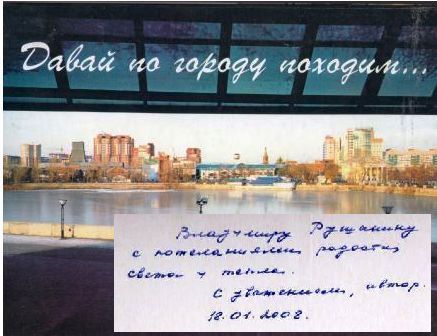 Давай по городу походим...
Владимиру Рушанину
с пожеланиями радости,
света и тепла.
С уважением, автор.
18.01.2008.